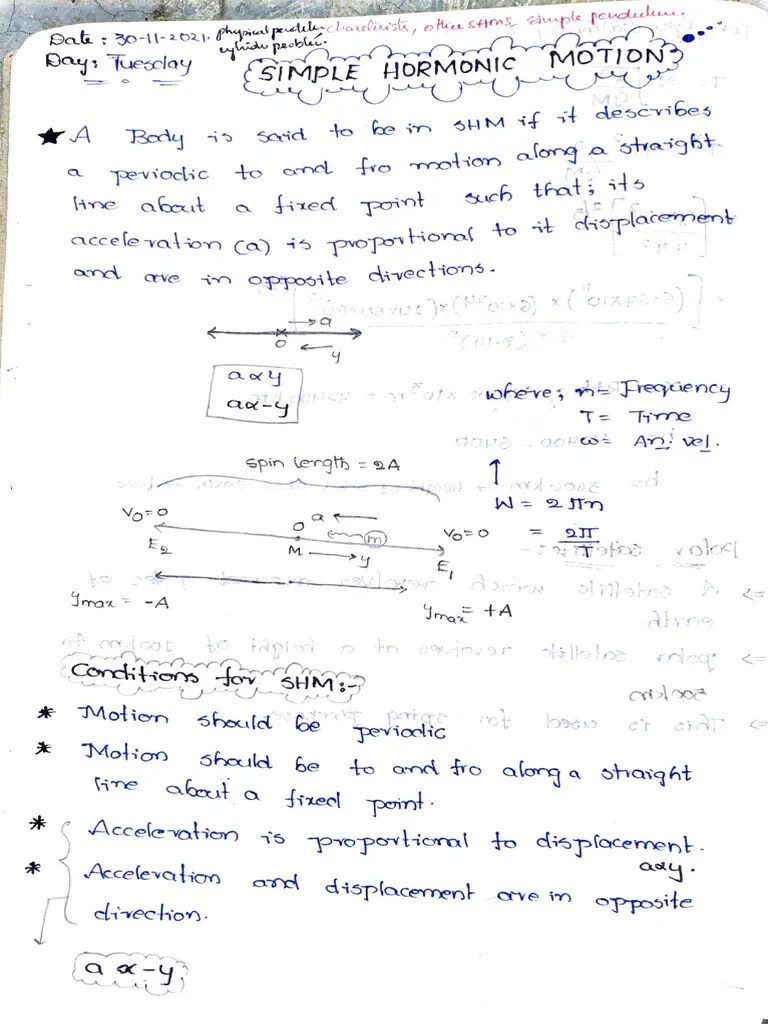 Date : 30-11-2021.
physical pendulen characterists, other SHMS, simple pendulum.
Day: Tuesday
SIMPLE HORMONIC MOTION
★ A Body is said to be in SHM if it describes
a periodic to and fro motion along a straight
line about a fixed point such that; its
acceleration (a) is proportional to it displacement
and are in opposite directions.
→a
O
← y
a ∝ y
a ∝ -y
where; n = Frequency
T = Time
ω = An! vel.
spin length = 2A
↑
W = 2πn
= 2π/T
V₀=0
O
a ←
m
V₀=0
E₂
M → y
E₁
ymax = -A
ymax = +A
Conditions for SHM:-
* Motion should be periodic
* Motion should be to and fro along a straight
line about a fixed point.
* Acceleration is proportional to displacement.
a∝y.
* Acceleration and displacement are in opposite
direction.
a ∝ -y